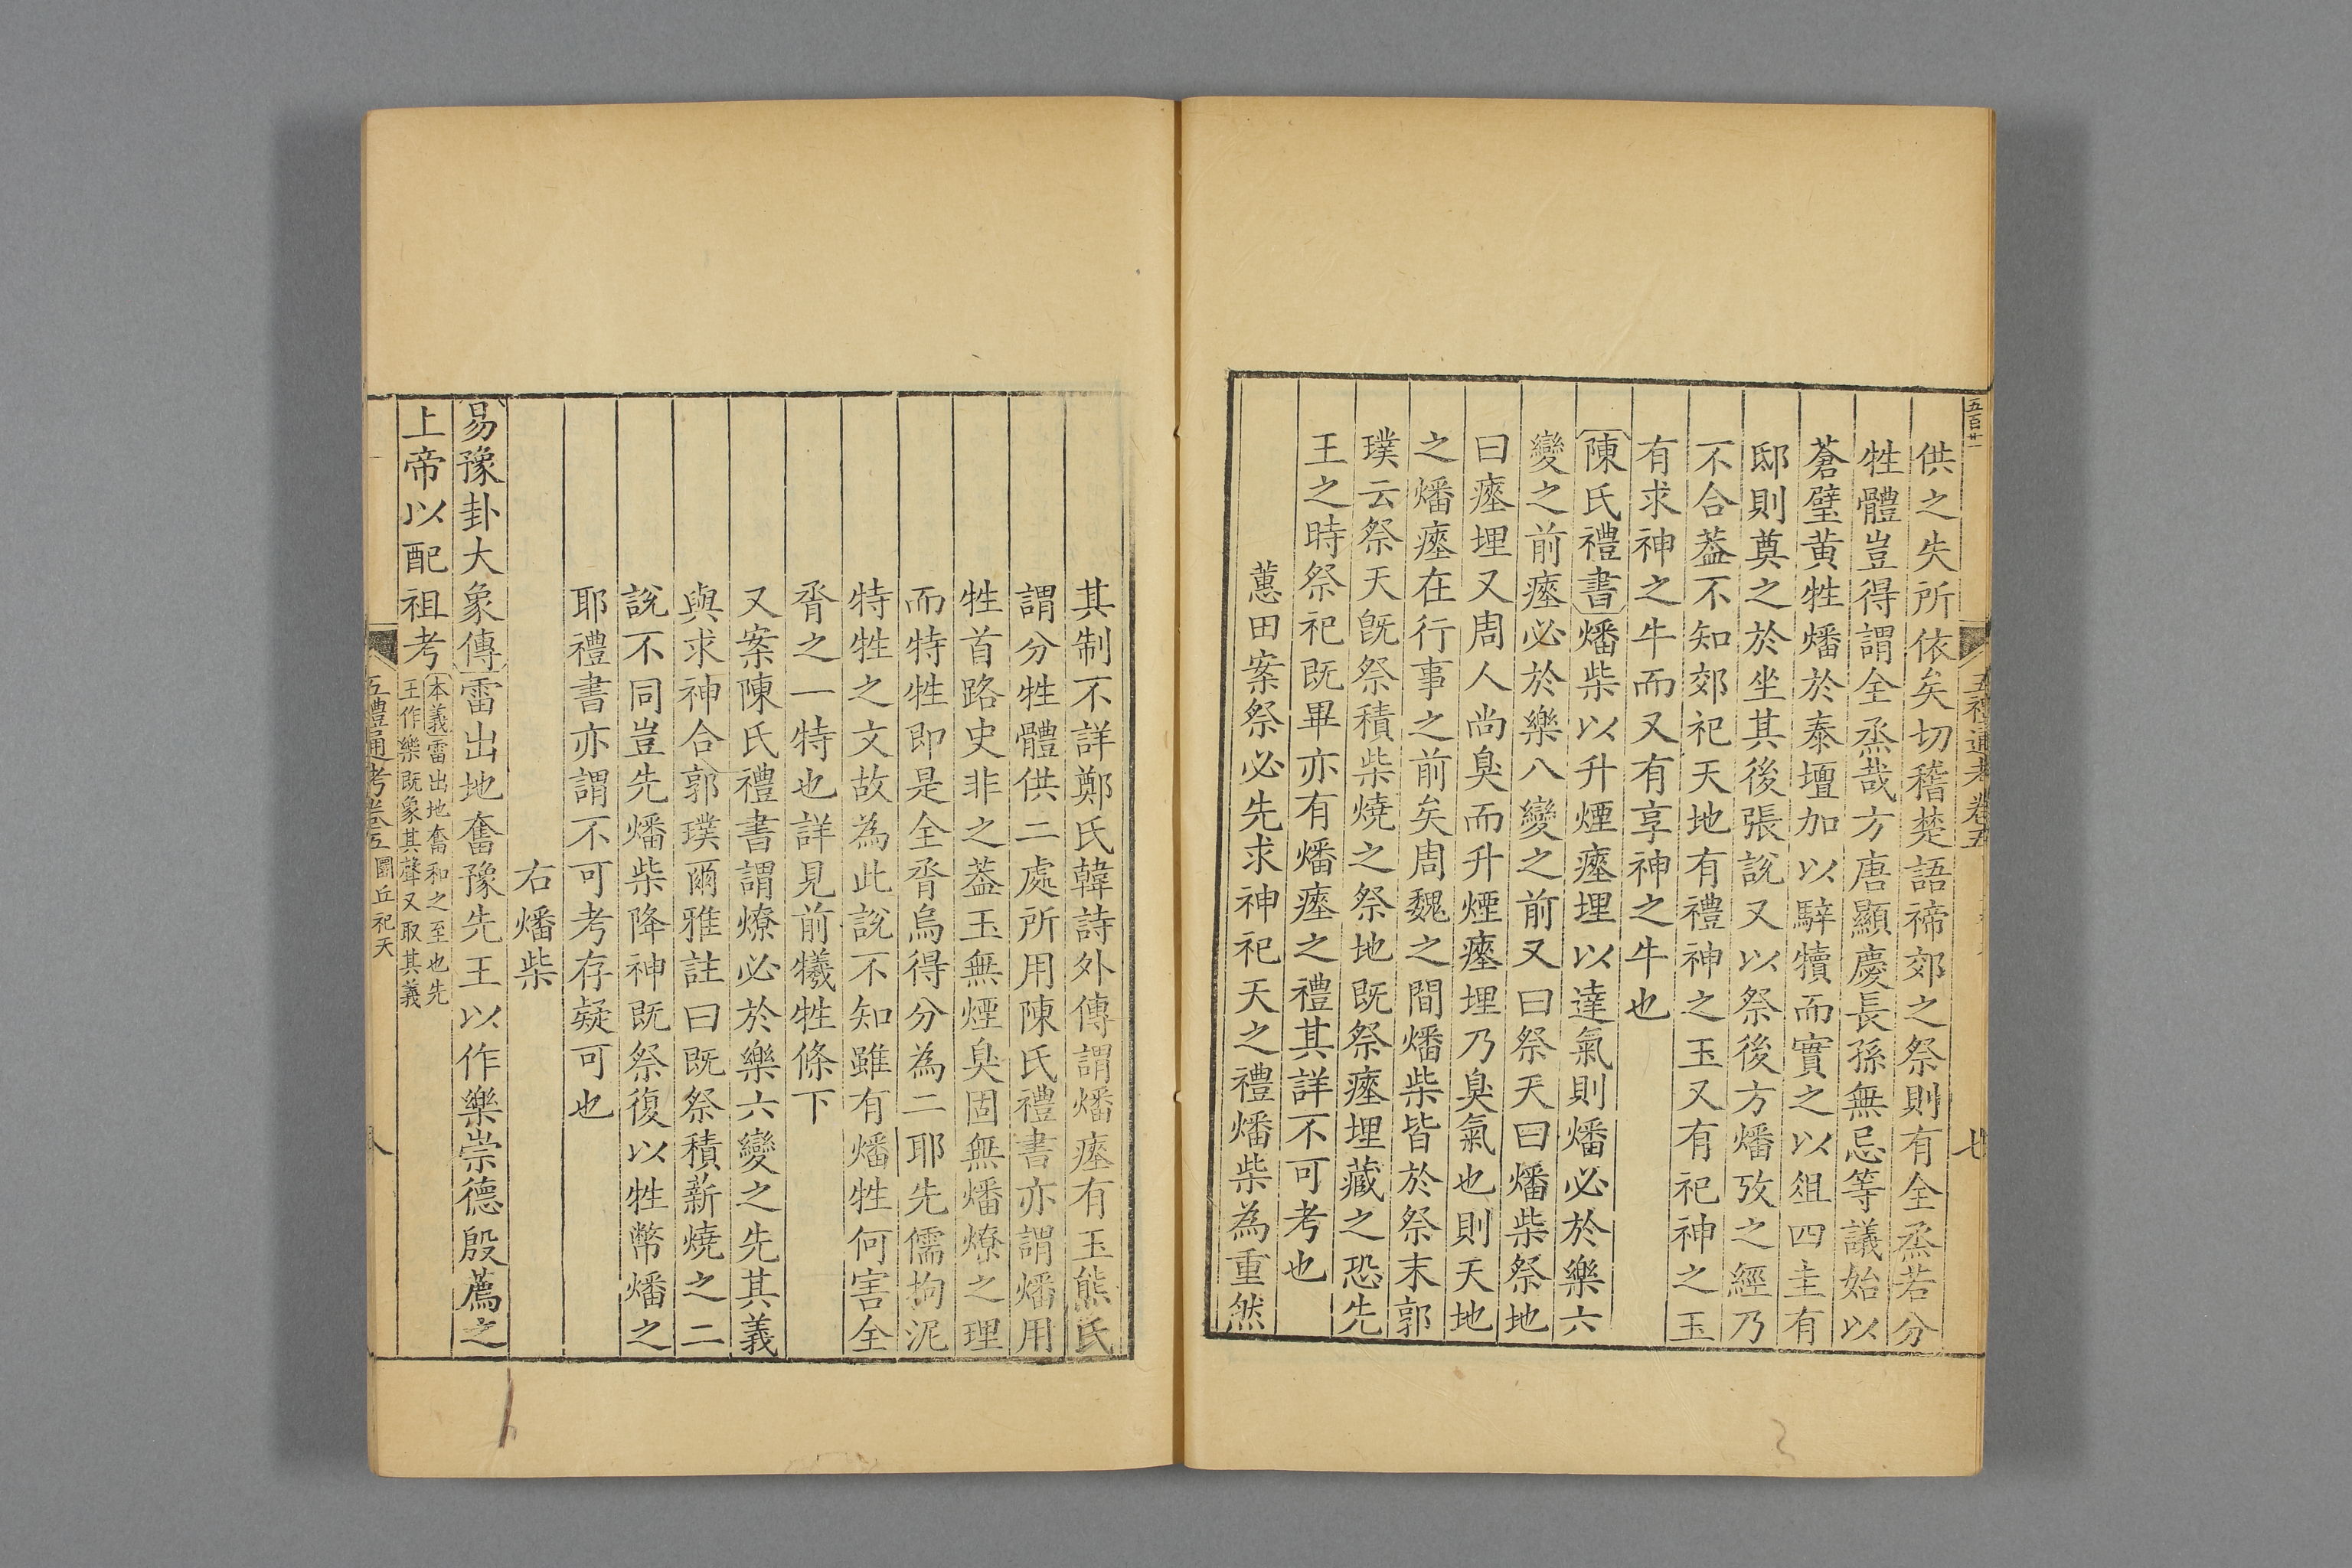 五百廿一
五禮通考卷五
七
供之失所依矣切稽楚語禘郊之祭則有全烝若分
牲體豈得謂全烝哉方唐顯慶長孫無忌等議始以
蒼璧黃牲燔於泰壇加以騂犢而實之以俎四圭有
邸則奠之於坐其後張說又以祭後方燔攷之經乃
不合葢不知郊祀天地有禮神之玉又有祀神之玉
有求神之牛而又有享神之牛也
陳氏禮書燔柴以升煙瘞埋以達氣則燔必於樂六
變之前瘞必於樂八變之前又曰祭天曰燔柴祭地
曰瘞埋又周人尚臭而升煙瘞埋乃臭氣也則天地
之燔瘞在行事之前矣周魏之間燔柴皆於祭末郭
璞云祭天旣祭積柴燒之祭地既祭瘞埋藏之恐先
王之時祭祀既畢亦有燔瘞之禮其詳不可考也
蕙田案祭必先求神祀天之禮燔柴為重然
其制不詳鄭氏韓詩外傳謂燔瘞有玉熊氏
謂分牲體供二處所用陳氏禮書亦謂燔用
牲首路史非之葢玉無煙臭固無燔燎之理
而特牲即是全脀烏得分為二耶先儒拘泥
特牲之文故為此說不知雖有燔牲何害全
脀之一特也詳見前犧牲條下
又案陳氏禮書謂燎必於樂六變之先其義
與求神合郭璞爾雅註曰既祭積薪燒之二
說不同豈先燔柴降神既祭復以牲幣燔之
耶禮書亦謂不可考存疑可也
右燔柴
易豫卦大象傳雷出地奮豫先王以作樂崇德殷薦之
上帝以配祖考
本義雷出地奮和之至也先
王作樂既象其聲又取其義
五禮通考卷五 圜丘祀天
八